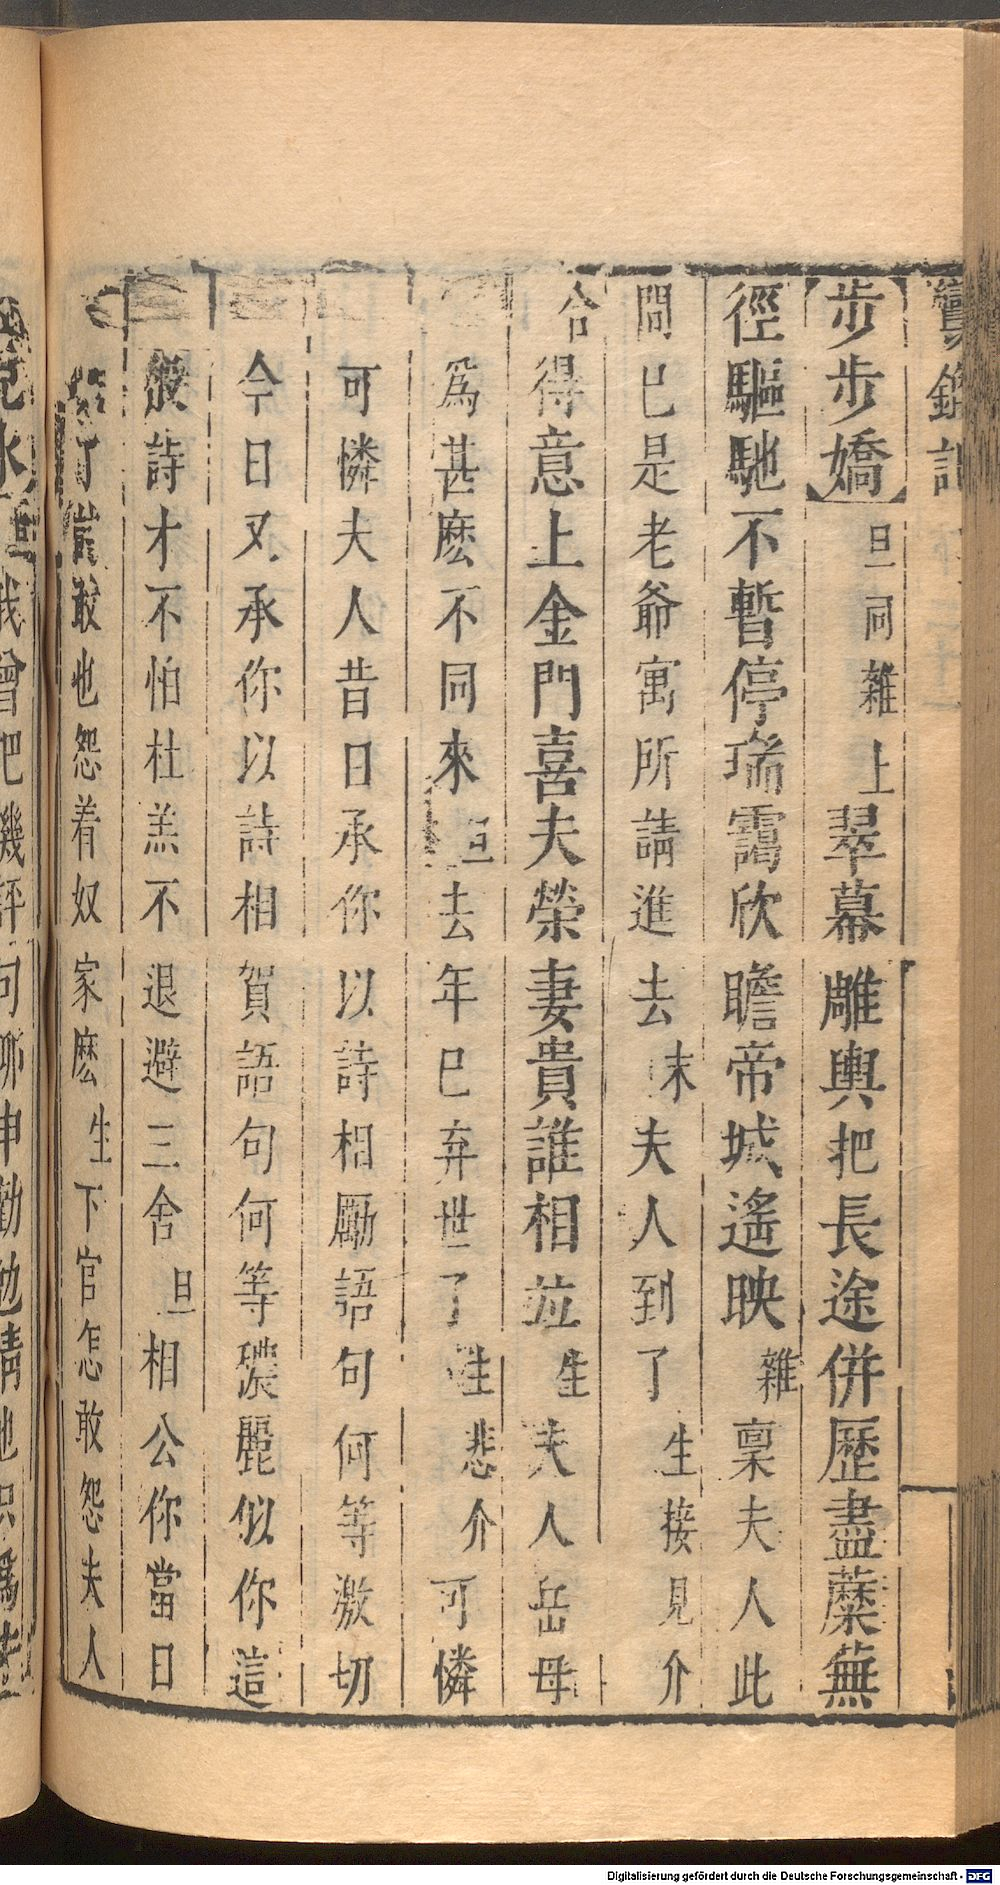 鸞鎞記
步步嬌 旦同雜上 翠幕雕輿把長途併歷盡蘼蕪
徑驅馳不暫停瑞靄欣瞻帝城遙映 雜 稟夫人此
間已是老爺寓所請進去 末 夫人到了 生接見介
合 得意上金門喜夫榮妻貴誰相並 生 夫人岳母
爲甚麽不同來 旦 去年已弃世了 生悲介 可憐
可憐夫人昔日承你以詩相勵語句何等激切
今日又承你以詩相賀語句何等穠麗似你這
般詩才不怕杜羔不退避三舍 旦 相公你當日
了豈敢也怨着奴家麽 生 下官怎敢怨夫人
Digitalisierung gefördert durch die Deutsche Forschungsgemeinschaft - DFG